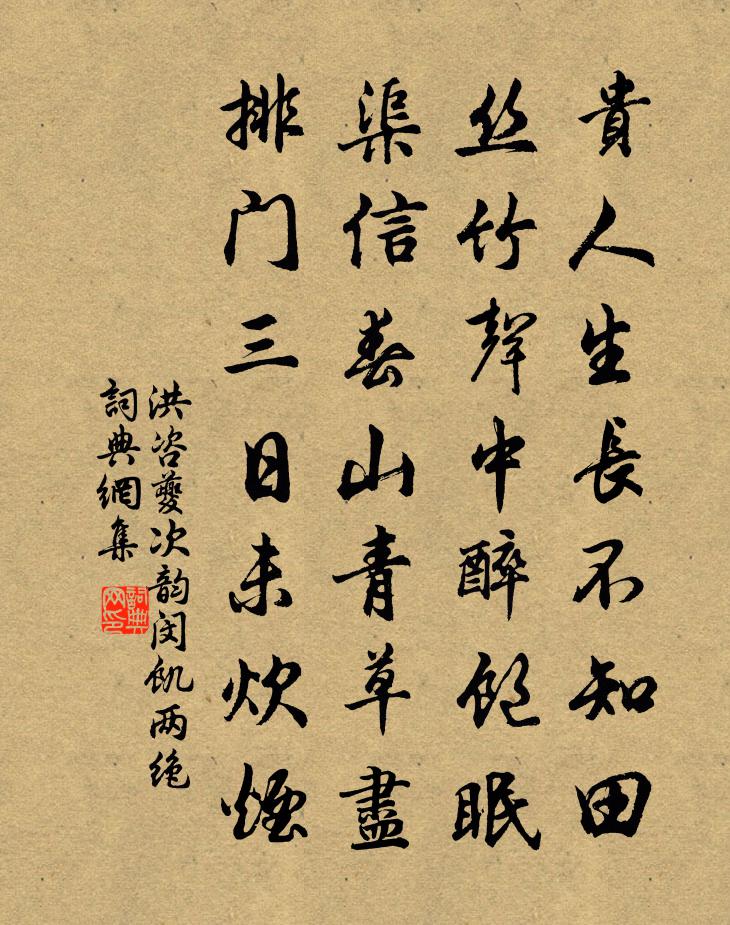 貴人生長不知田
丝竹聲中醉飽眠
渠信春山青草盡
排门三日未炊煙
洪咨夔次韵闵飢两绝
詞典網集
詞典网印